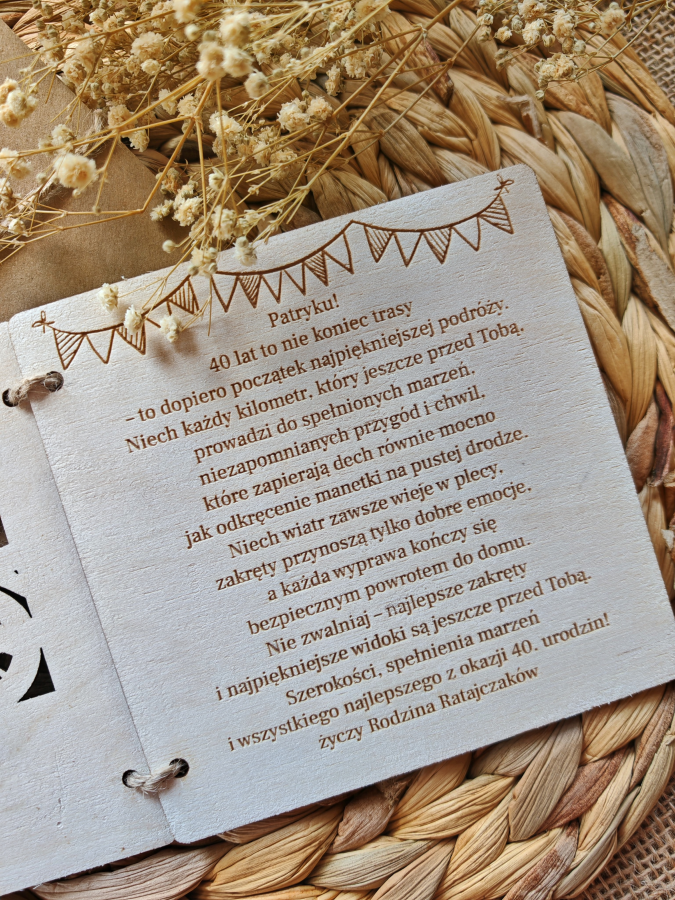 Patryku!
40 lat to nie koniec trasy
– to dopiero początek najpiękniejszej podróży.
Niech każdy kilometr, który jeszcze przed Tobą,
prowadzi do spełnionych marzeń,
niezapomnianych przygód i chwil,
które zapierają dech równie mocno
jak odkręcenie manetki na pustej drodze.
Niech wiatr zawsze wieje w plecy,
zakręty przynoszą tylko dobre emocje,
a każda wyprawa kończy się
bezpiecznym powrotem do domu.
Nie zwalniaj – najlepsze zakręty
i najpiękniejsze widoki są jeszcze przed Tobą.
Szerokości, spełnienia marzeń
i wszystkiego najlepszego z okazji 40. urodzin!
życzy Rodzina Ratajczaków